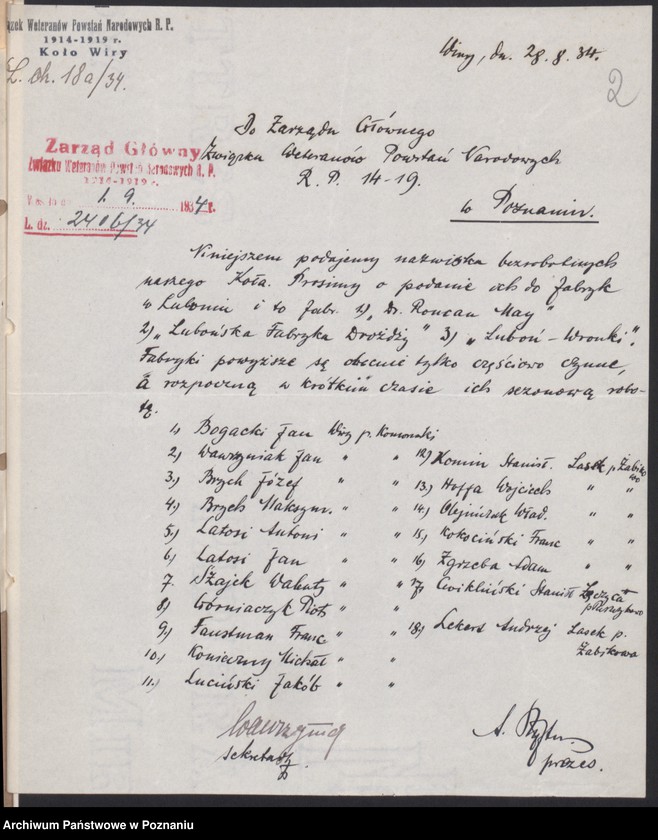 Związek Weteranów Powstań Narodowych R. P.
1914-1919 r.
Koło Wiry
L. ch. 18a/34.
Wiry, dn. 28. 8. 34.
2
Do Zarządu Głównego
Związku Weteranów Powstań Narodowych
R. P. 14-19.
w Poznaniu.
Zarząd Główny
Związku Weteranów Powstań Narodowych R. P.
1914-1919 r.
1. 9. 1934 r.
L. dz. 2406/34
Niniejszem podajemy nazwiska bezrobotnych
naszego Koła. Prosimy o podanie ich do fabryk
w Luboniu i to fabr. 1) „Dr. Roman May"
2) „Lubońska Fabryka Drożdży" 3) „Luboń-Wronki".
Fabryki powyższe są obecnie tylko częściowo czynne,
a rozpoczną w krótkim czasie ich sezonową robo-
tę.
1) Bogacki Jan Wiry p. Komorniki
2) Wawrzyniak Jan " "
3.) Brych Józef " "
4.) Brych Maksym. " "
5.) Latosi Antoni " "
6.) Latosi Jan " "
7. Szajek Walenty " "
8) Górniaczyk Piotr " "
9.) Faustman Franc " "
10.) Konieczny Michał " "
11.) Luciński Jakób " "
12.) Komin Stanisł. Lasek p. Żabikowo
13.) Hoffa Wojciech " "
14.) Olejniczak Wład. " "
15.) Kokociński Franc " "
16.) Zgrzeba Adam " "
17.) Cwikliński Stanisł Łęczyca
p. Puszczykowo
18.) Lekert Andrzej Lasek p.
Żabikowa
sekretarz
prezes.
Archiwum Państwowe w Poznaniu